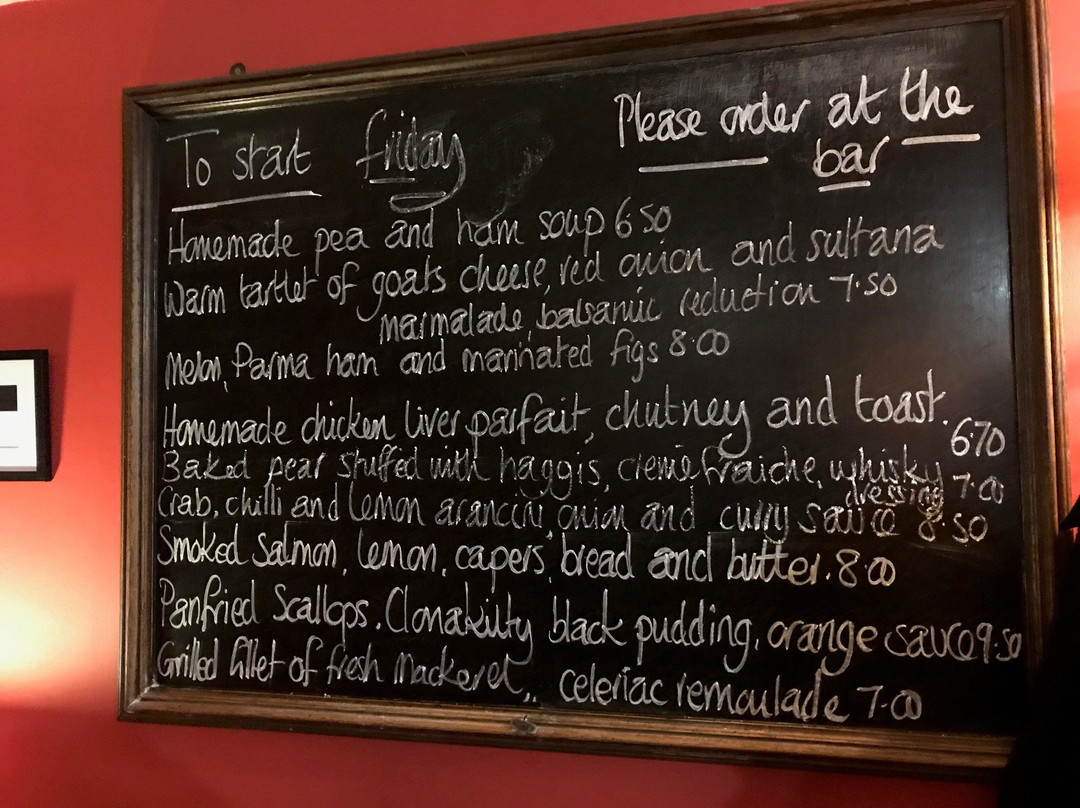 To start Friday
Please order at the
bar
Homemade pea and ham soup 6.50
Warm tartlet of goats cheese, red onion and sultana
marmalade, balsamic reduction 7.50
Melon, Parma ham and marinated figs 8.00
Homemade chicken liver parfait, chutney and toast.
6.70
Baked pear stuffed with haggis, creme fraiche, whisky
dressing 7.00
Crab, chilli and lemon arancini, onion and curry sauce 8.50
Smoked Salmon, lemon, capers, bread and butter. 8.00
Panfried Scallops. Clonakilty black pudding, orange sauce 9.50
Grilled fillet of fresh Mackerel,, celeriac remoulade 7.00